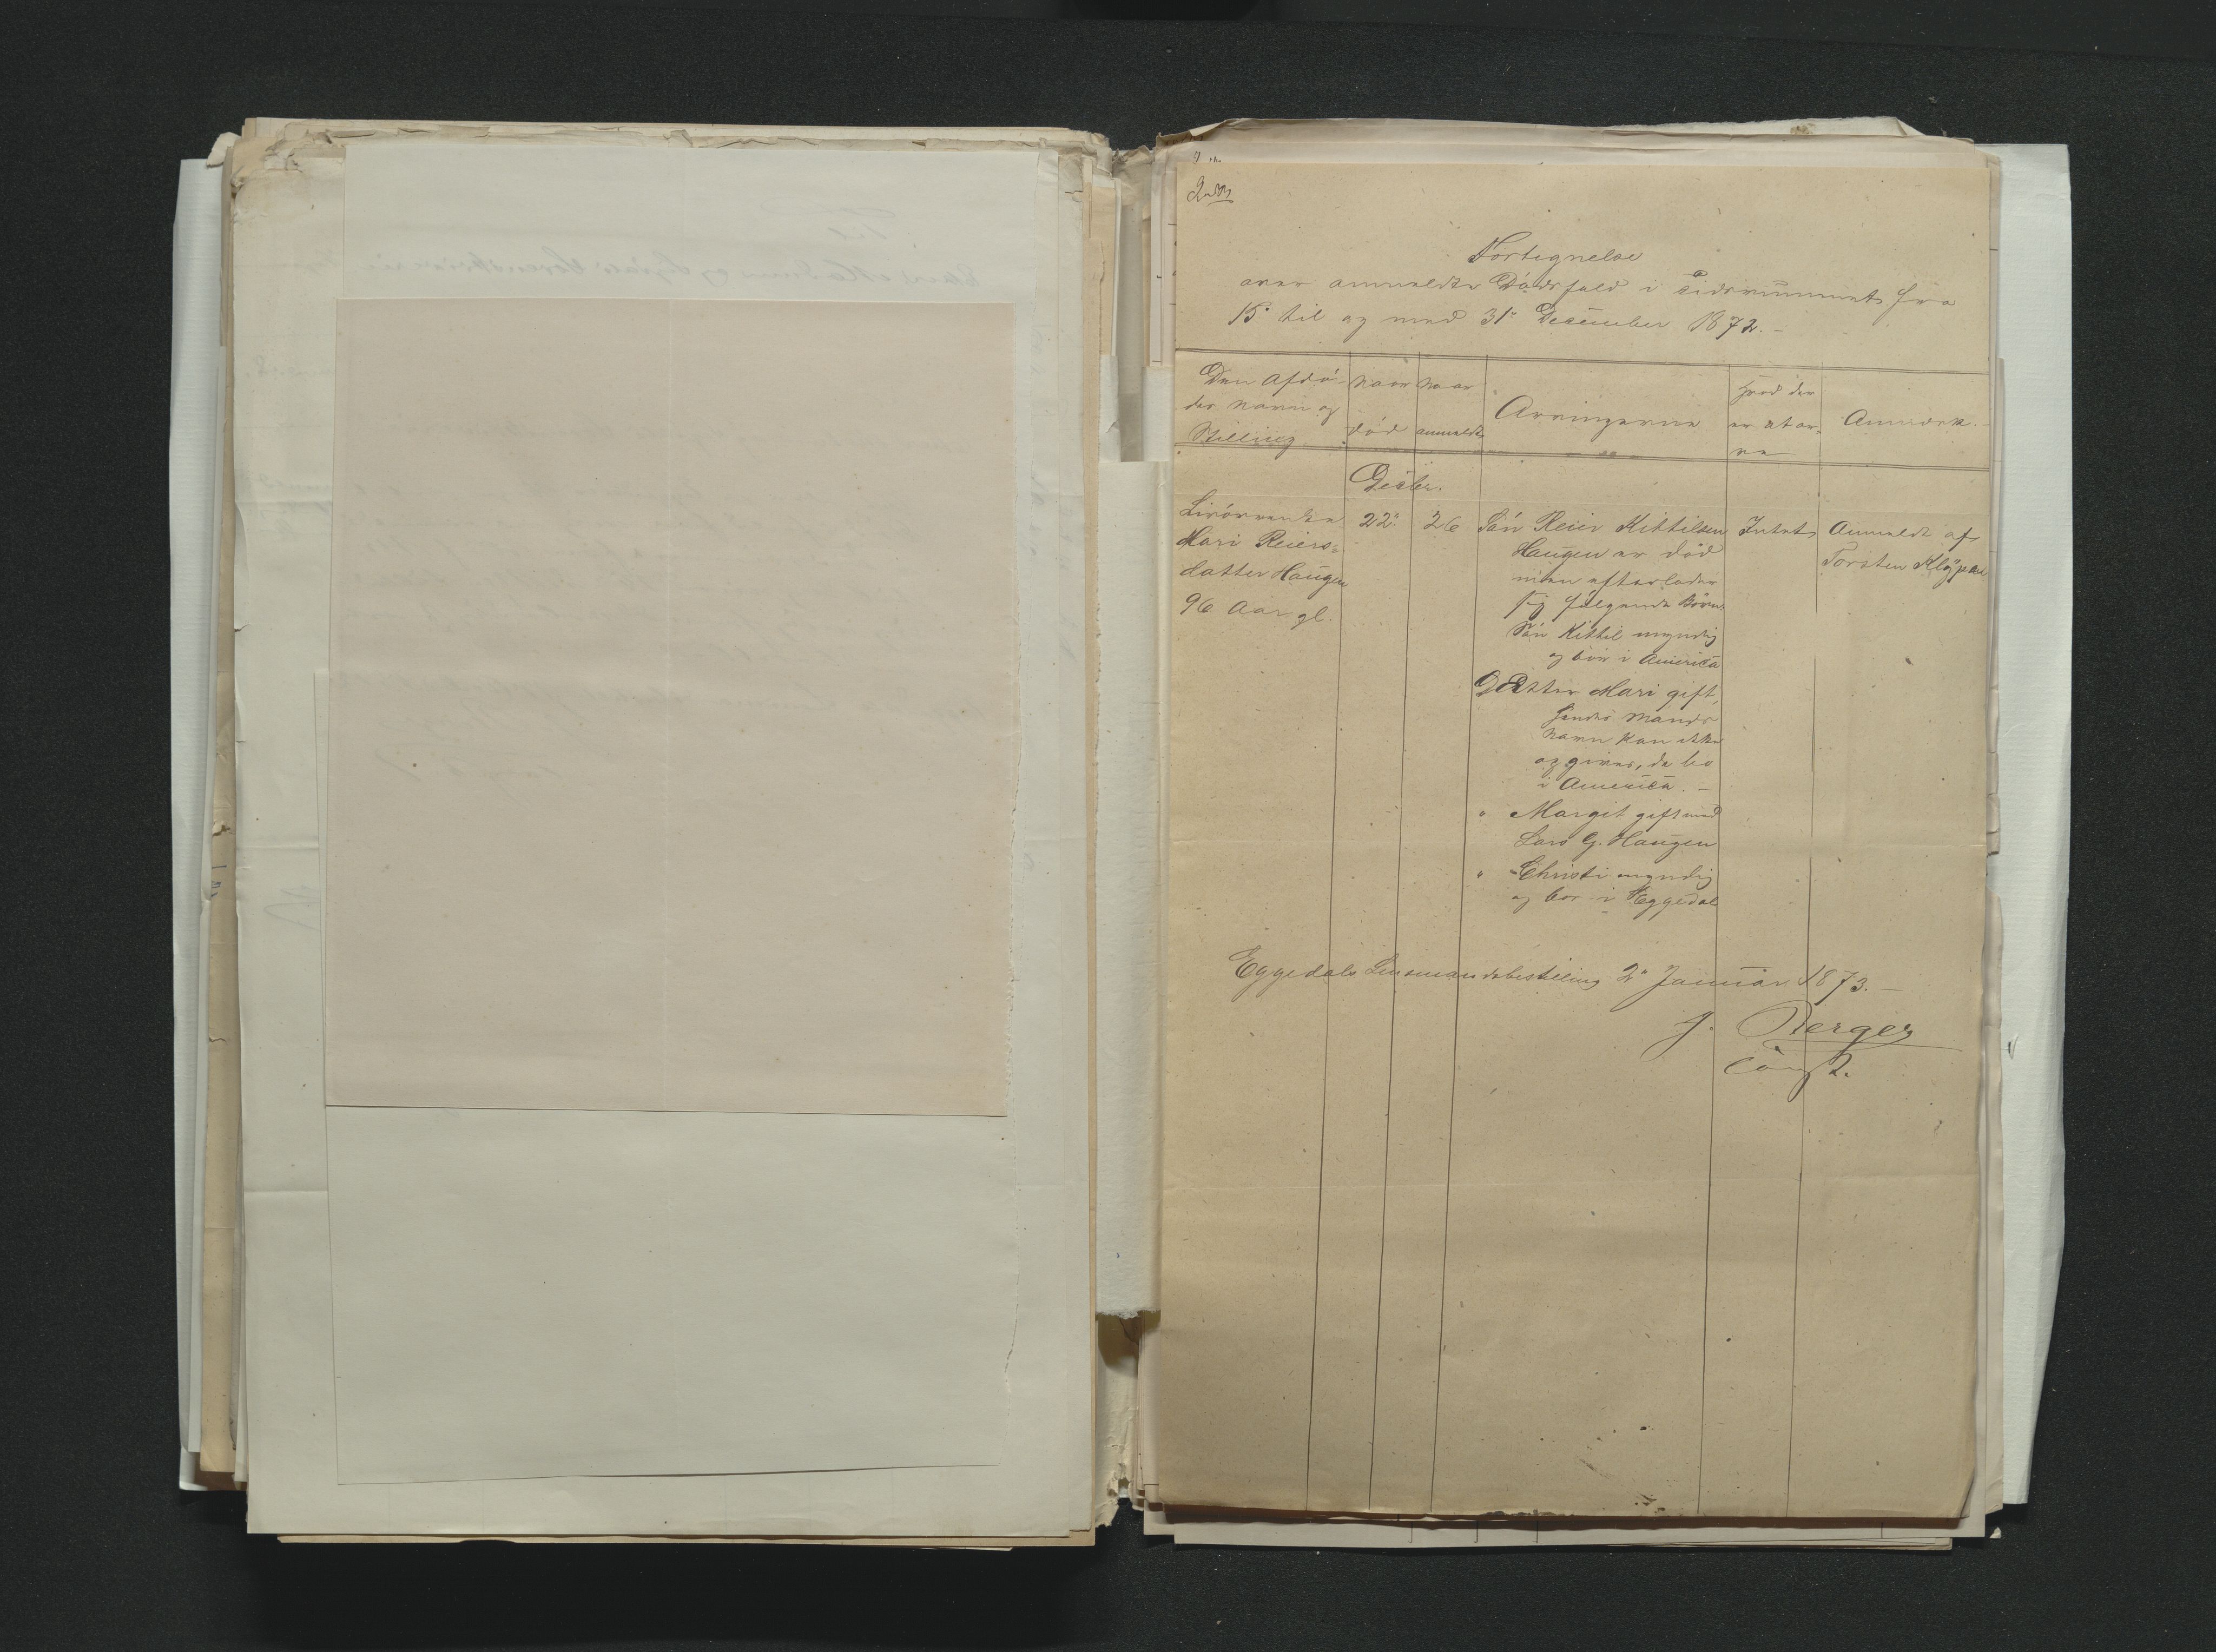 Fortegnelse
over anmeldte Dødsfald i Tidsrummet fra
15de til og med 31te December 1872. -
Den Afdø-
des Navn og
Stilling
Naar
død
Naar
anmeldt
Arvingerne
Hvad der
er at ar-
ve
Anmærk.
Decbr.
Livørenke
Mari Reiers-
datter Haugen
96 Aar gl.
22de
26
Søn Reier Kittilsen
Haugen er død
men efterlader
sig følgende Børn:
Søn Kittil myndig
og bor i America
Datter Mari gift,
hendes Mands
Navn kan ikke
opgives, de bo
i America. -
" Margit gift med
Lars G. Haugen
" Christi myndig
og bor i Eggedal
Intet
Anmeldt af
Torsten Kløpne
Eggedals Lensmandsbestilling 2den Januar 1873. -
J. Berger
Const.